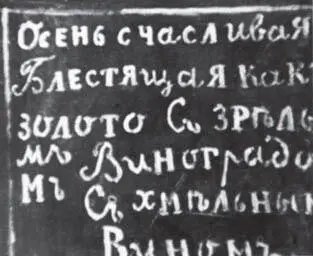 Осень счасливая
Блестящая какъ
золото Съ зрѣлы
мъ Виноградо
мъ
Съ хмѣльным
Виномъ